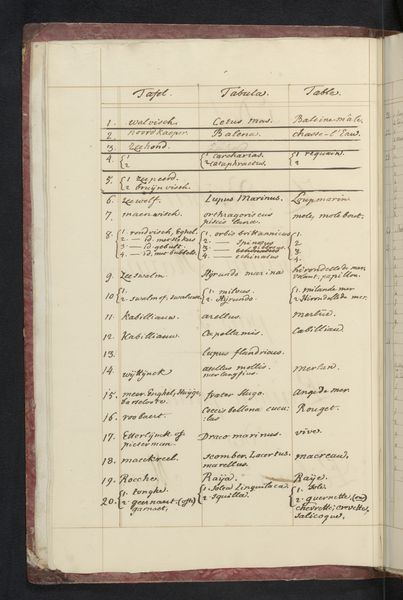 Tafel. Tabula. Table.
1. walvisch. Cetus, mas. Baleine mâle.
2. noordkaper. Balena. chasse-l'Eau.
3. Zeehond.
4. {1 {1 carcharias. {1 requain.
2 2 cataphractus. 2
5. {1 zeepeerd.
2 bruijnvisch.
6. Zeewolf. Lupus Marinus. Loup marin
7. maenvisch. orthragoriscus mole, mola bout.
piscis Luna.
8. {1. rondvisch, {1. orbis britannicus {1.
2. — id. 2. — spinosus 2.
3. — id. gebult. 3. — 3.
4. — id. 4. — echinatus 4.
9. Zeeswalm. Hyrundo marina hirondelle de mer,
volant, papillon.
10. {1. {1. milvus. {1. milan de mer
2. swalm of swaluw. 2. Hyrundo. 2. Hirondelle de mer.
11. Kabilliauw. asellus. merlue.
12. Kabilliauw. Cabilliau
13. lupus flandricus.
14. wijttjnck asellus mollis. merlan.
15. meer Enghel, frater Hugo. Ange de mer.
16. roobaert. Coccis bellona cucu- Rouget.
lus
17. Etterlijnck of Draco marinus. vive.
pieterman.
18. maeckreel. scomber, Lacertus. macreau.
19. Rocche. Raija. Raije.
20. {1. tonghe. {1. Solea Linguilaca. {1. Sole.
2. geernaert (ofte) 2. squilla. 2. guernette (ou)
garnaet. chevrette, crevette,
salicoque.